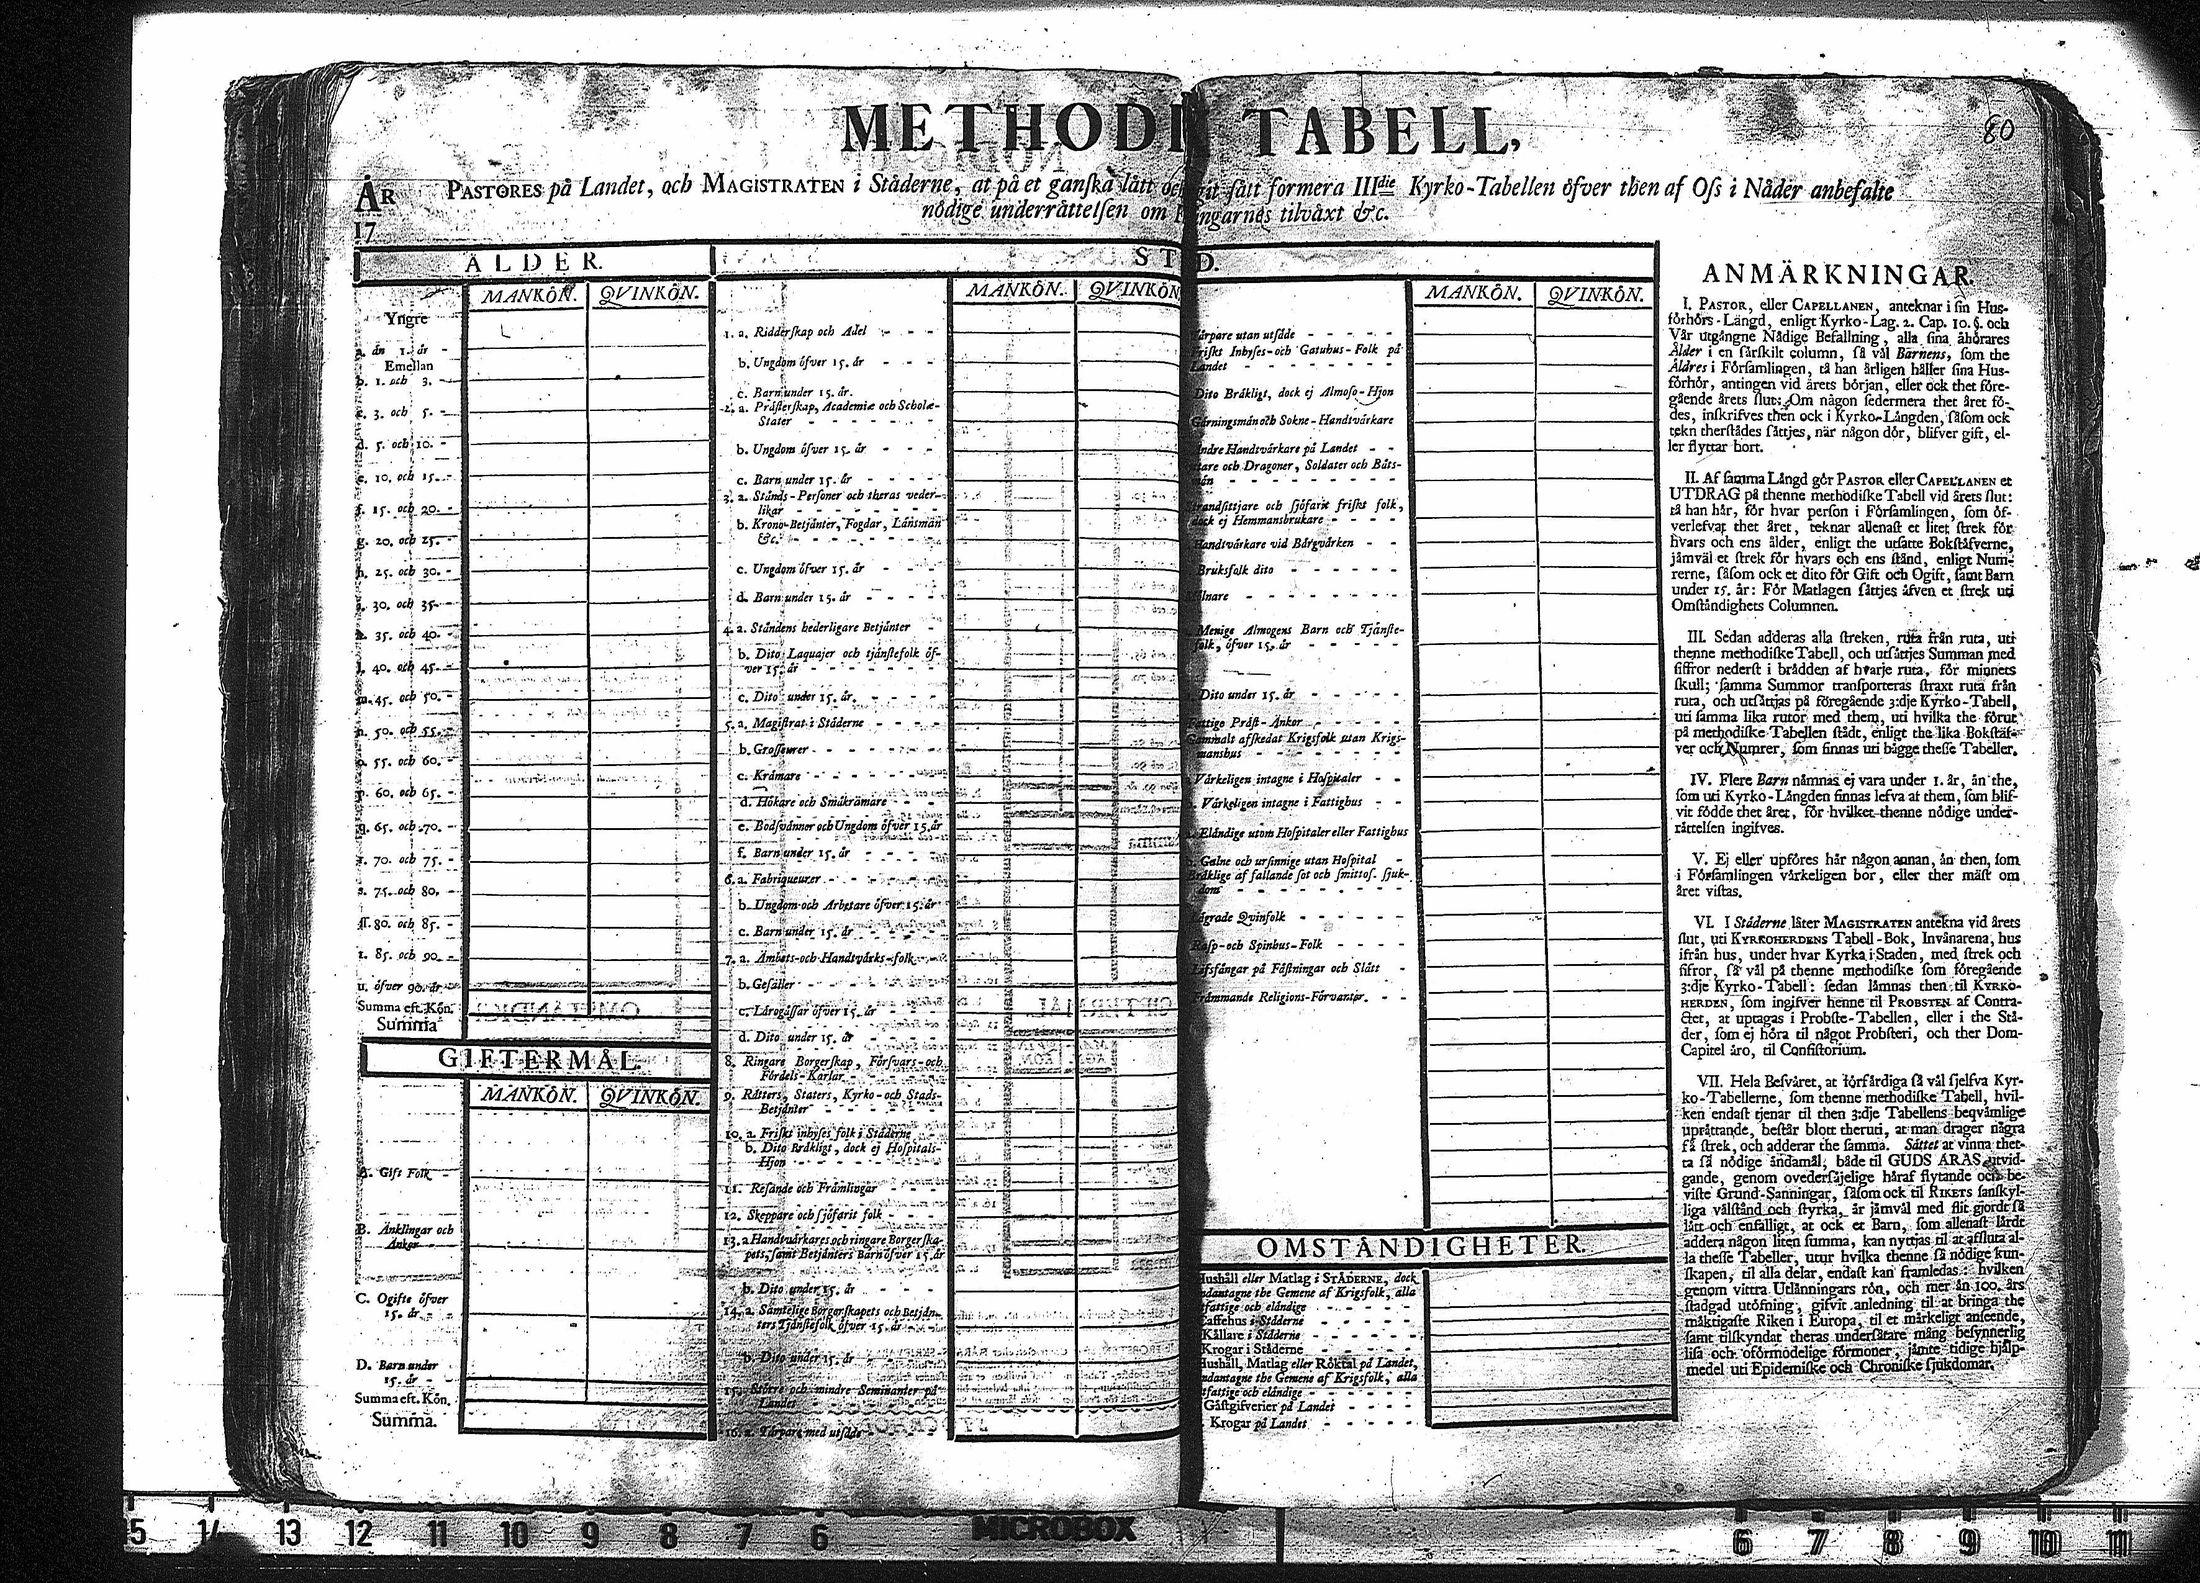 METHODI TABELL,
80
ÅR
17
PASTORES på Landet, och MAGISTRATEN i Ståderne, at på et ganſka lått och ſått formera IIIdie Kyrko-Tabellen öfver then af Oſs i Nåder anbefalte
nödige underråttelſen om ngarnes tilvåxt &c.
ÅLDER.
MANKÖN. QVINKÖN.
Yngre
a. ån 1. år -
Emellan
b. 1. och 3. -
c. 3. och 5. -
d. 5. och 10. -
e. 10. och 15. -
f. 15. och 20. -
g. 20. och 25. -
h. 25. och 30. -
i. 30. och 35. -
k. 35. och 40. -
l. 40. och 45. -
m. 45. och 50. -
n. 50. och 55. -
o. 55. och 60. -
p. 60. och 65. -
q. 65. och 70. -
r. 70. och 75. -
s. 75. och 80. -
ſſ. 80. och 85. -
t. 85. och 90. -
u. öfver 90. år
Summa eft. Kön.
Summa
GIFTERMÅL.
MANKÖN. QVINKÖN.
A. Gift Folk
B. Ånklingar och
Ånkor -
C. Ogifte öfver
15. år - -
D. Barn under
15. år - -
Summa eft. Kön.
Summa.
ST
MANKÖN. QVINKÖN
1. a. Ridderſkap och Adel - - -
b. Ungdom öfver 15. år - - -
c. Barn under 15. år.
2. a. Pråſterſkap, Academiæ och Scholæ-
Stater - - - - - -
b. Ungdom öfver 15. år - - -
c. Barn under 15. år - - - -
3. a. Stånds-Perſoner och theras veder-
likar - - - - - - -
b. Krono-Betjånter, Fogdar, Lånsmån
&c. - - - - - - -
c. Ungdom öfver 15. år - - -
d. Barn under 15. år - - - -
4. a. Ståndens hederligare Betjånter -
b. Dito Laquajer och tjånſtefolk öf-
ver 15. år - - - - - -
c. Dito under 15. år. - - - -
5. a. Magiſtrat i Ståderne - - - -
b. Groſſeurer - - - - - -
c. Kråmare - - - - - -
d. Hökare och Småkråmare - - -
e. Bodſvånner och Ungdom öfver 15. år
f. Barn under 15. år - - - -
6. a. Fabriqueurer - - - - - -
b. Ungdom och Arbetare öfver 15. år
c. Barn under 15. år - - - -
7. a. Åmbets-och Handtvårks-folk - -
b. Geſåller - - - - - -
c. Lårogåſſar öfver 15. år - - -
d. Dito under 15. år - - - -
8. Ringare Borgerſkap, Förſvars-och
Fördels-Karlar - - - -
9. Råtters, Staters, Kyrko-och Stads-
Betjånter - - - - -
10. a. Friſkt inhyſes folk i Ståderne
b. Dito Bråkligt, dock ej Hoſpitals-
Hjon - - - - - -
11. Reſande och Fråmlingar - - -
12. Skeppare och ſjöfarit folk - -
13. a. Handtvårkares och ringare Borgerſka-
pets, ſamt Betjånters Barn öfver 15. år
b. Dito under 15. år - - -
14. a. Såmtelige Borgerſkapets och Betjån-
ters Tjånſtefolk öfver 15. år - -
b. Dito under 15. år - - -
15. Större och mindre Seminanter på
Landet - - - - - -
16. a. Tårpare med utſåde - - -
D.
MANKÖN. QVINKÖN.
årpare utan utſåde - - - - -
riſkt Inhyſes-och Gatuhus-Folk på
Landet - - - - - -
Dito Bråkligt, dock ej Almoſo-Hjon
Gårningsmån och Sokne-Handtvårkare
ndre Handtvårkare på Landet - -
tare och Dragoner, Soldater och Båts-
mån - - - - - - -
trandſittjare och ſjöfarit friſkt folk,
dock ej Hemmansbrukare - - - -
Handtvårkare vid Bårgvårken - -
Bruksfolk dito - - - - - -
ölnare - - - - - - -
Menige Almogens Barn och Tjånſte-
folk, öfver 15. år - - - - -
Dito under 15. år - - - - -
Fattige Pråſt-Ånkor - - - -
Gammalt afſkedat Krigsfolk utan Krigs-
manshus - - - - - -
Vårkeligen intagne i Hoſpitaler - -
Vårkeligen intagne i Fattighus - -
Elåndige utom Hoſpitaler eller Fattighus
Galne och urſinnige utan Hoſpital -
Bråklige af fallande ſot och ſmittoſ. ſjuk-
dom - - - - - - -
ågrade Qvinfolk - - - - -
Raſp-och Spinhus-Folk - - - -
Lifsfångar på Fåſtningar och Slått -
Fråmmande Religions-Förvanter. - -
OMSTÅNDIGHETER.
Hushåll eller Matlag i STÅDERNE, dock
ndantagne the Gemene af Krigsfolk, alla
tfattige och elåndige - - - - -
Caffehus i Ståderne - - - - -
Kållare i Ståderne - - - - -
Krogar i Ståderne - - - - -
Hushåll, Matlag eller Röktal på Landet,
ndantagne the Gemene af Krigsfolk, alla
tfattige och elåndige - - - - -
Gåſtgifverier på Landet - - - -
Krogar på Landet - - - - -
ANMÄRKNINGAR.
I. PASTOR, eller CAPELLANEN, anteknar i ſin Hus-
förhörs-Långd, enligt Kyrko-Lag. 2. Cap. 10. §. och
Vår utgångne Nådige Befallning, alla ſina åhörares
Ålder i en ſårſkilt column, ſå vål Barnens, ſom the
Åldres i Förſamlingen, tå han årligen håller ſina Hus-
förhör, antingen vid årets början, eller ock thet före-
gående årets ſlut: Om någon ſedermera thet året fö-
des, inſkrifves then ock i Kyrko-Långden, ſåſom ock
tekn therſtådes ſåttjes, når någon dör, blifver gift, el-
ler flyttar bort.
II. Af ſamma Långd gör PASTOR eller CAPELLANEN et
UTDRAG på thenne methodiſke Tabell vid årets ſlut:
tå han hår, för hvar perſon i Förſamlingen, ſom öf-
verlefvat thet året, teknar allenaſt et litet ſtrek för
hvars och ens ålder, enligt the utſatte Bokſtåfverne,
jåmvål et ſtrek för hvars och ens ſtånd, enligt Num-
rerne, ſåſom ock et dito för Gift och Ogift, ſamt Barn
under 15. år: För Matlagen ſåttjes åfven et ſtrek uti
Omſtåndighets Columnen.
III. Sedan adderas alla ſtreken, ruta från ruta, uti
thenne methodiſke Tabell, och utſåttjes Summan med
ſiffror nederſt i brådden af hvarje ruta, för minnets
ſkull; ſamma Summor tranſporteras ſtraxt ruta från
ruta, och utſåttjas på föregående 3:dje Kyrko-Tabell,
uti ſamma lika rutor med them, uti hvilka the förut
på methodiſke Tabellen ſtådt, enligt the lika Bokſtåf-
ver och Numrer, ſom finnas uti bågge theſſe Tabeller.
IV. Flere Barn nåmnas ej vara under 1. år, ån the,
ſom uti Kyrko-Långden finnas lefva af them, ſom blif-
vit födde thet året, för hvilket thenne nödige under-
råttelſen ingifves.
V. Ej eller upföres hår någon annan, ån then, ſom
i Förſamlingen vårkeligen bor, eller ther måſt om
året viſtas.
VI. I Ståderne låter MAGISTRATEN antekna vid årets
ſlut, uti KYRKOHERDENS Tabell-Bok, Invånarena, hus
ifrån hus, under hvar Kyrka i Staden, med ſtrek och
ſifror, ſå vål på thenne methodiſke ſom föregående
3:dje Kyrko-Tabell: ſedan låmnas then til KYRKO-
HERDEN, ſom ingifver henne til PROBSTEN af Contra-
ctet, at uptagas i Probſte-Tabellen, eller i the Stå-
der, ſom ej höra til något Probſteri, och ther Dom-
Capitel åro, til Conſiſtorium.
VII. Hela Beſvåret, at förfårdiga ſå vål ſjelfva Kyr-
ko-Tabellerne, ſom thenne methodiſke Tabell, hvil-
ken endaſt tjenar til then 3:dje Tabellens beqvåmlige
upråttande, beſtår blott theruti, at man drager några
få ſtrek, och adderar the ſamma. Såttet at vinna thet-
ta ſå nödige åndamål, både til GUDS ÅRAS utvid-
gande, genom ovederſåjelige håraf flytande och be-
viſte Grund-Sanningar, ſåſom ock til RIKETS ſanſkyl-
liga vålſtånd och ſtyrka, år jåmvål med flit gjordt ſå
lått och enfalligt, at ock et Barn, ſom allenaſt lårdt
addera någon liten ſumma, kan nyttjas til at affluta al-
la theſſe Tabeller, utur hvilka thenne ſå nödige kun-
ſkapen, til alla delar, endaſt kan framledas: hvilken
genom vittra Utlånningars rön, och mer ån 100. års
ſtadgad utöfning, gifvit anledning til at bringa the
måktigaſte Riken i Europa, til et mårkeligt anſeende,
ſamt tilſkyndat theras underſåtare mång beſynnerlig
liſa och oförmodelige förmoner, jåmte tidige hjålp-
medel uti Epidemiſke och Chroniſke ſjukdomar.
15 14 13 12 11 10 9 8 7 6 MICROBOX 6 7 8 9 10 11